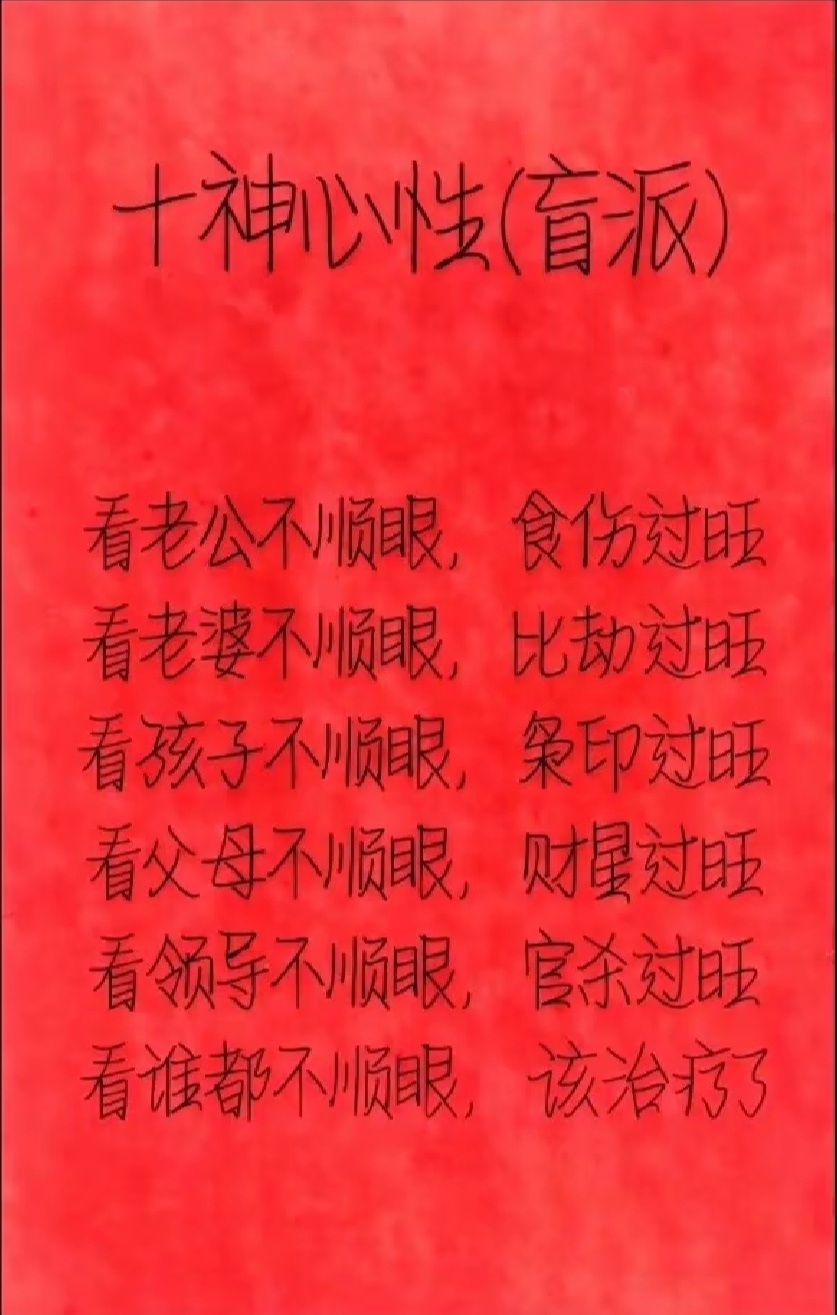 十神心性(盲派)
看老公不顺眼, 食伤过旺
看老婆不顺眼, 比劫过旺
看孩子不顺眼, 枭印过旺
看父母不顺眼, 财星过旺
看领导不顺眼, 官杀过旺
看谁都不顺眼, 该治疗了